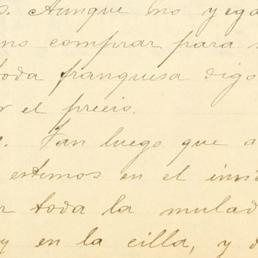 s. Aunque no yega
no comprar para s
toda franquesa digo
r el precio.
. Tan luego que a
estemos en el inv
r toda la mulad
y en la cilla, y d